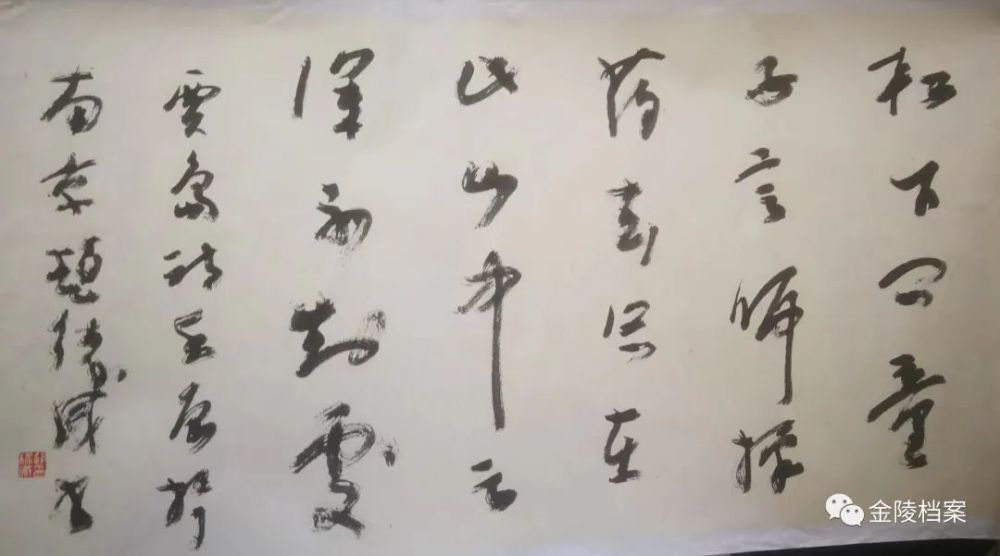 松下问童
子言师採
葯去只在
此山中云
深不知處
贾岛诗於
南京赵绪成书
金陵档案